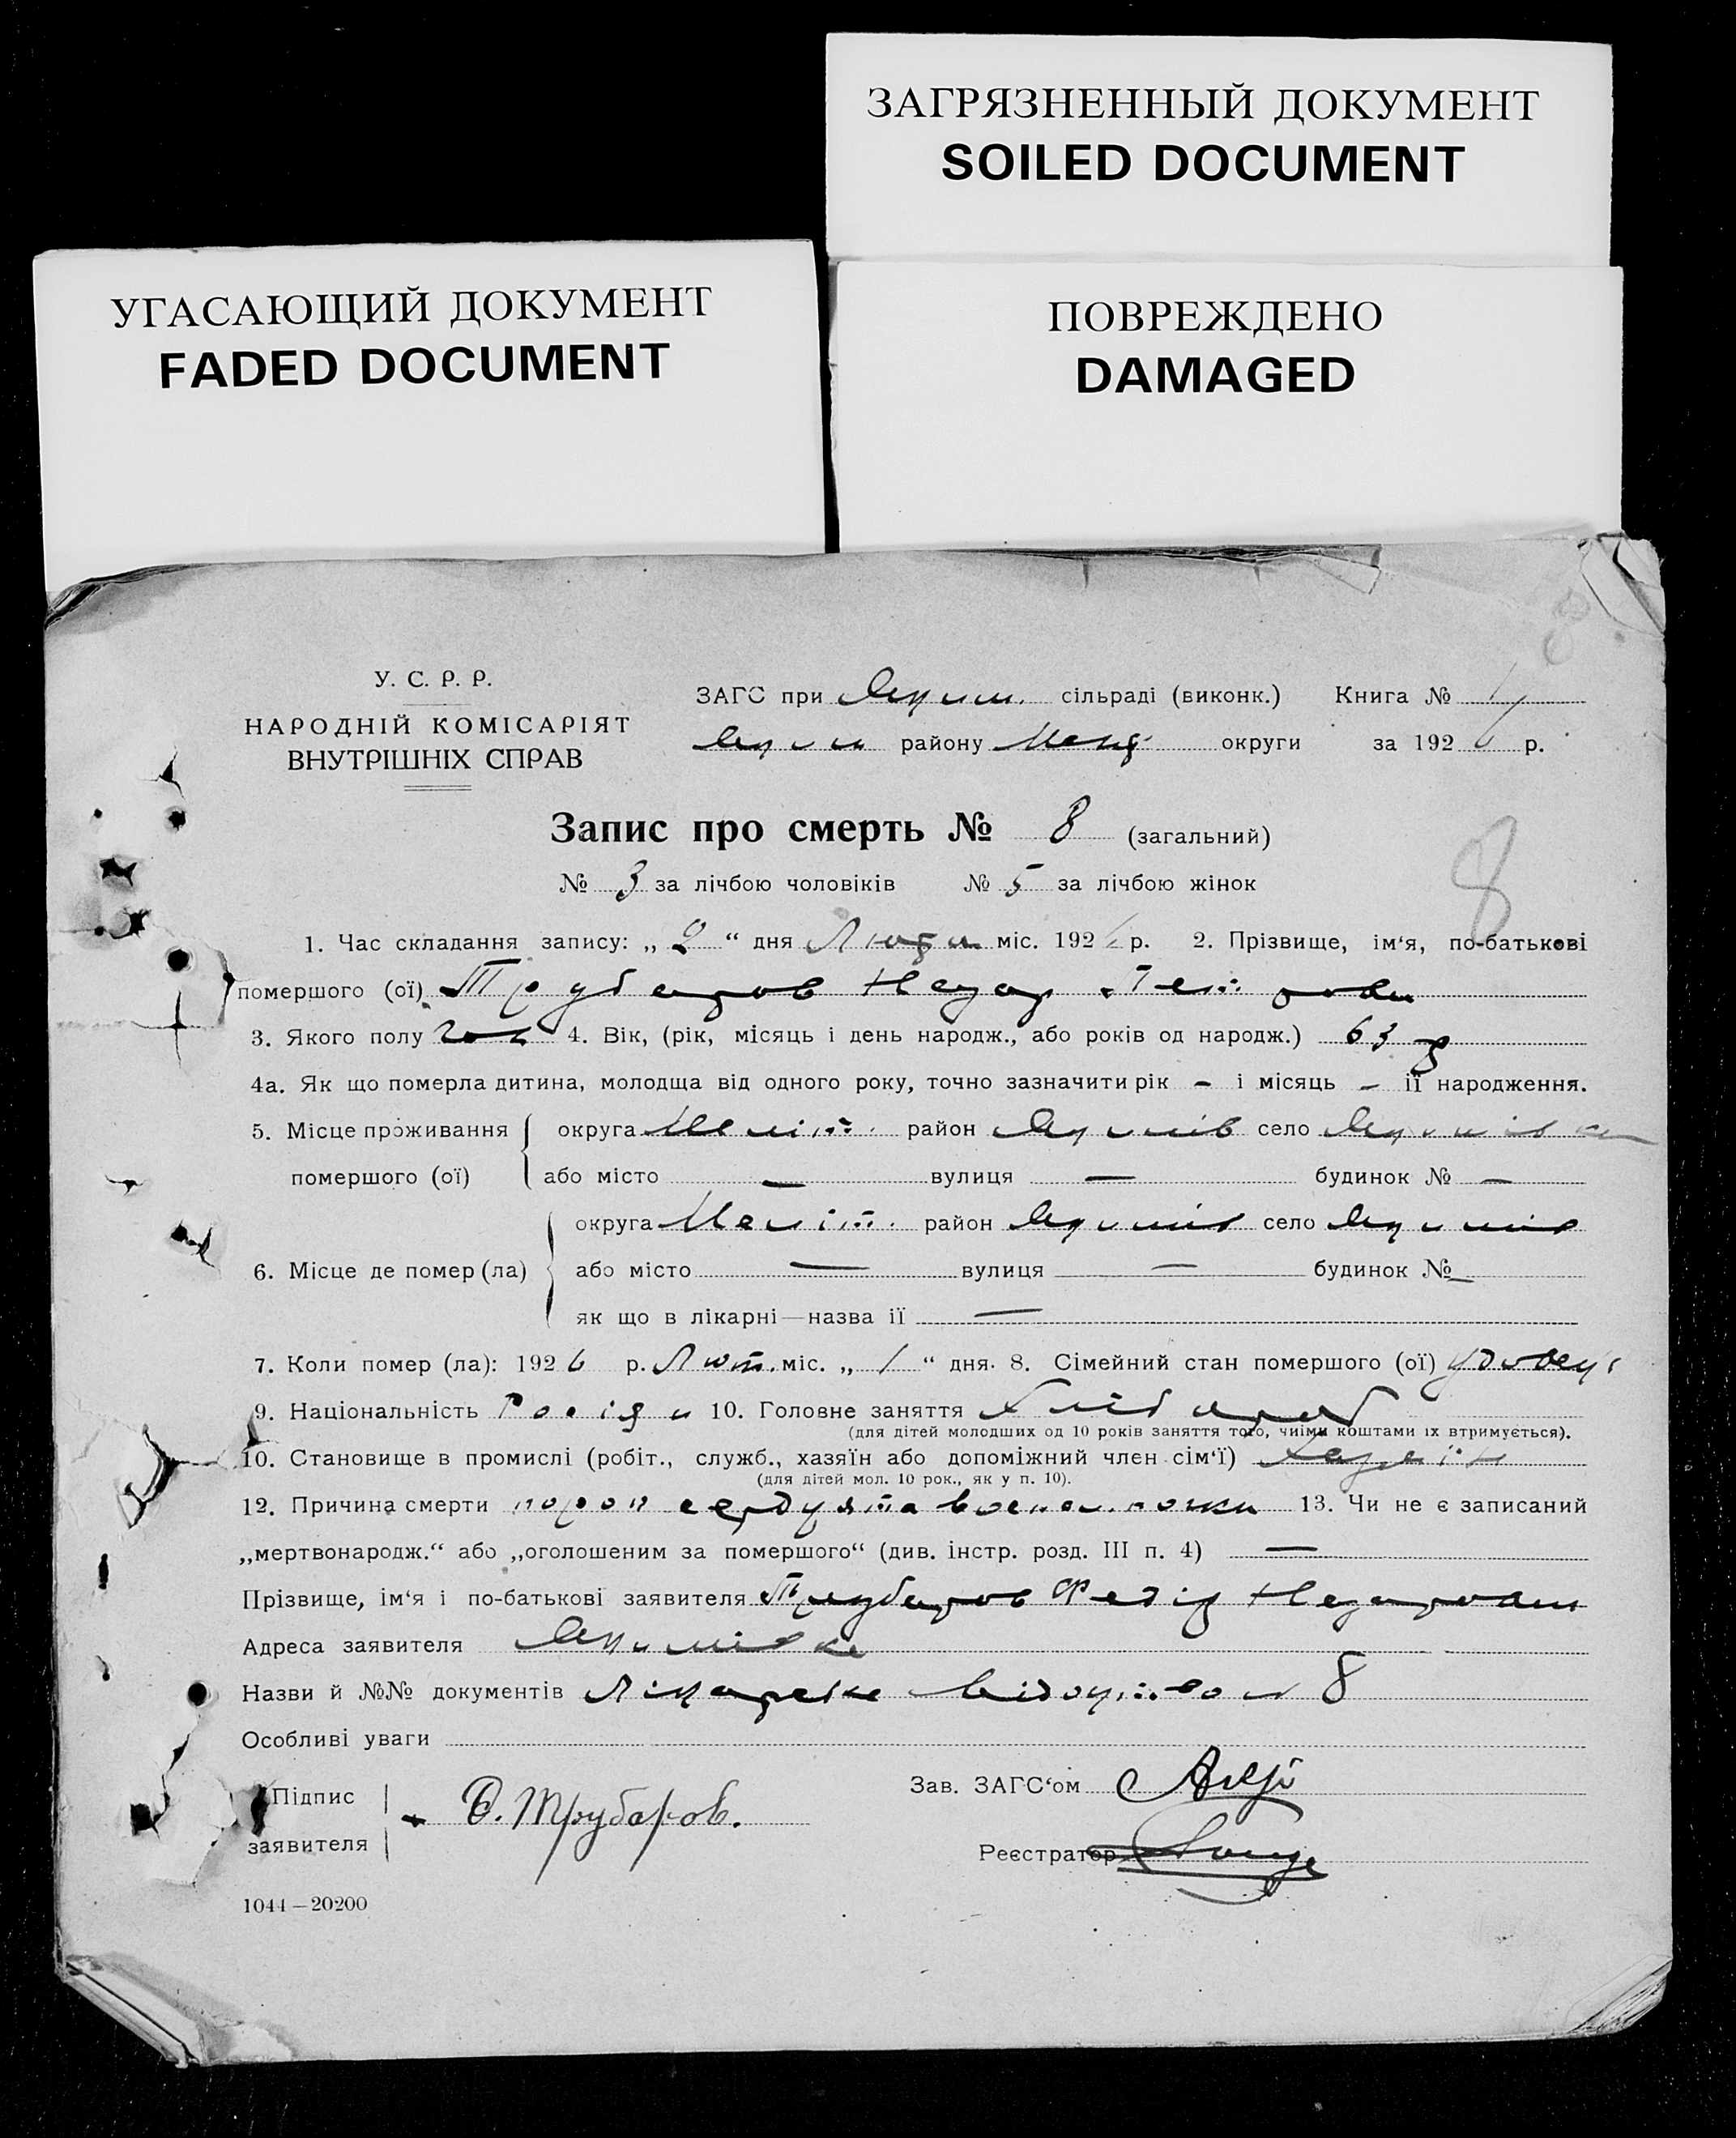 ЗАГРЯЗНЕННЫЙ ДОКУМЕНТ
SOILED DOCUMENT
УГАСАЮЩИЙ ДОКУМЕНТ
FADED DOCUMENT
ПОВРЕЖДЕНО
DAMAGED
У. С. Р. Р.
НАРОДНІЙ КОМІСАРІЯТ
ВНУТРІШНІХ СПРАВ
ЗАГС при сільраді (виконк.) Книга №
району округи за 1926 р.
Запис про смерть № 8 (загальний)
8
№ 3 за лічбою чоловіків № 5 за лічбою жінок
1. Час складання запису: „ 2 “ дня міс. 192 р. 2. Прізвище, ім‘я, по-батькові
помершого (ої) Трубаров Назар
3. Якого полу 4. Вік, (рік, місяць і день народж., або років од народж.) 63 р
4а. Як що померла дитина, молодша від одного року, точно зазначити рік – і місяць – її народження.
5. Місце проживання округа Меліт. район Якимів село Якимівка
помершого (ої) або місто — вулиця — будинок № —
округа Меліт. район Якимів село Якимів
6. Місце де помер (ла) або місто — вулиця — будинок № —
як що в лікарні—назва її —
7. Коли помер (ла): 1926 р. Лют. міс. „ 1 “ дня. 8. Сімейний стан помершого (ої) удовець
9. Національність 10. Головне заняття Хлібороб
(для дітей молодших од 10 років заняття того, чиїми коштами їх втримується).
10. Становище в промислі (робіт., служб., хазяїн або допоміжний член сім‘ї) Хазяїн
(для дітей мол. 10 рок., як у п. 10).
12. Причина смерти порок сердця та 13. Чи не є записаний
„мертвонародж.“ або „оголошеним за помершого“ (див. інстр. розд. III п. 4) —
Прізвище, ім‘я і по-батькові заявителя Трубаров Федір Назарович
Адреса заявителя Якимівка
Назви й №№ документів Лікарське 8
Особливі уваги
Підпис
заявителя Ф. Трубаров.
Зав. ЗАГС‘ом
Реєстратор
1044 — 20200